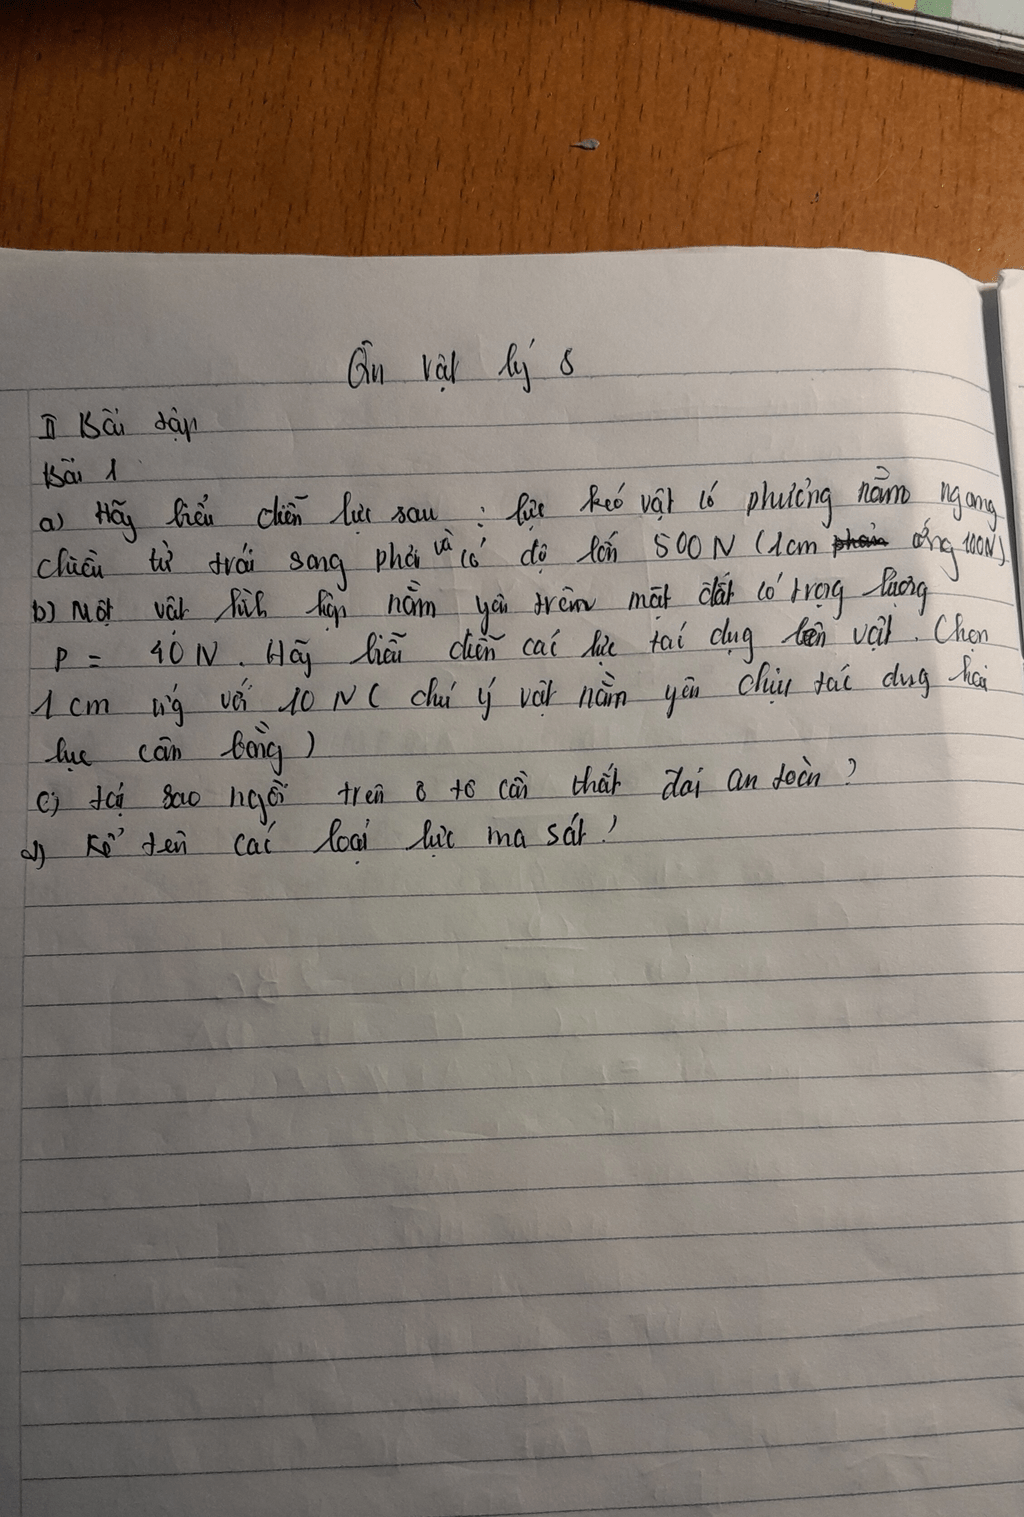 Ôn vật lý 8
II Bài tập
Bài 1
a) Hãy biểu diễn lực sau : lực kéo vật có phương nằm ngang
chiều từ trái sang phải và có độ lớn 500N (1cm phản ứng 100N)
b) Một vật hình hộp nằm yên trên mặt đất có trọng lượng
P = 40N. Hãy biểu diễn các lực tác dụng lên vật. Chọn
1cm ứng với 10N ( chú ý vật nằm yên chịu tác dụng hai
lực cân bằng )
c) tại sao ngồi trên ô tô cần thắt dai an toàn ?
d) Kể tên các loại lực ma sát ?